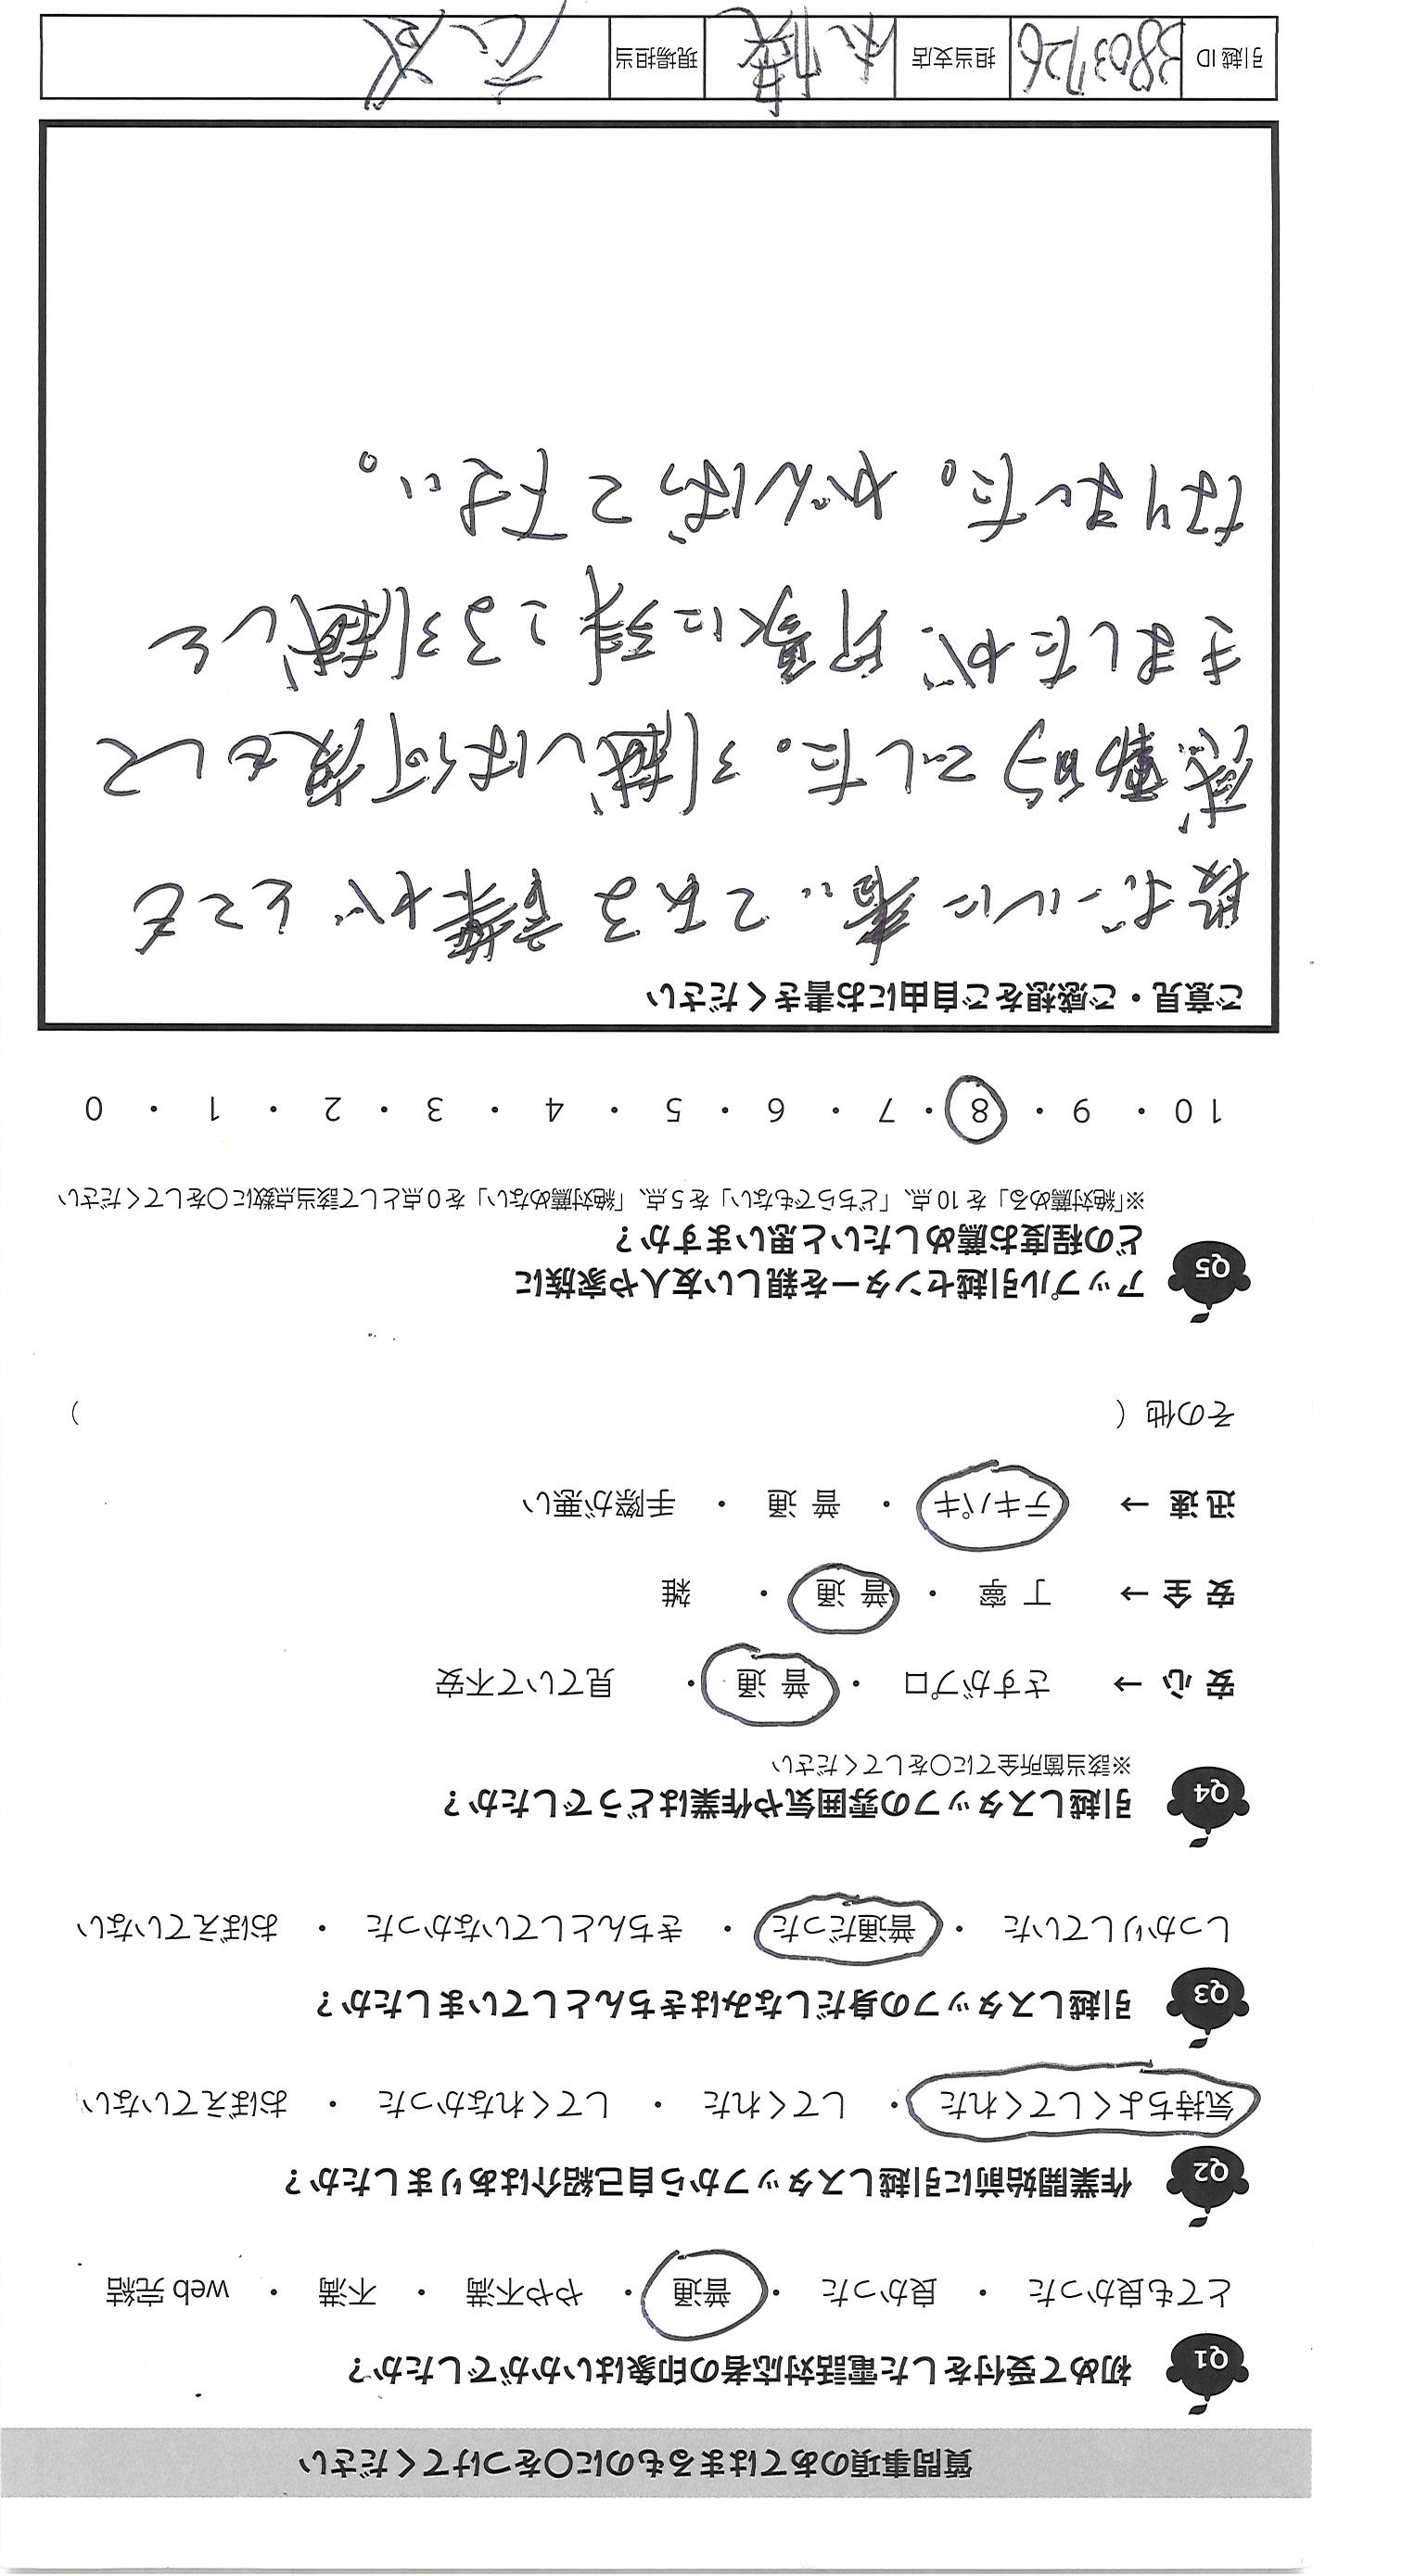 質問事項のあてはまるものに〇をつけてください
Q1 初めて受付をした電話対応者の印象はいかがでしたか？
とても良かった ・ 良かった ・ 普通 ・ やや不満 ・ 不満 ・ web 完結
Q2 作業開始前に引越しスタッフから自己紹介はありましたか？
気持ちよくしてくれた ・ してくれた ・ してくれなかった ・ おぼえていない
Q3 引越しスタッフの身だしなみはきちんとしていましたか？
しっかりしていた ・ 普通だった ・ きちんとしていなかった ・ おぼえていない
Q4 引越しスタッフの雰囲気や作業はどうでしたか？
※該当箇所全てに〇をしてください
安 心 → さすがプロ ・ 普 通 ・ 見ていて不安
安 全 → 丁 寧 ・ 普 通 ・ 雑
迅 速 → テキパキ ・ 普 通 ・ 手際が悪い
その他（ ）
Q5 アップル引越センターを親しい友人や家族に
どの程度お薦めしたいと思いますか？
※「絶対薦める」を 10 点、「どちらでもない」を 5 点、「絶対薦めない」を 0 点として該当点数に〇をしてください
10 ・ 9 ・ 8 ・ 7 ・ 6 ・ 5 ・ 4 ・ 3 ・ 2 ・ 1 ・ 0
ご意見・ご感想をご自由にお書きください
段ボールに書いてある言葉がとても
感動的でした。引越しは何度もして
きましたが、印象に残こる引越しと
なりました。がんばって下さい。
引越 ID 3803726 担当支店 現場担当